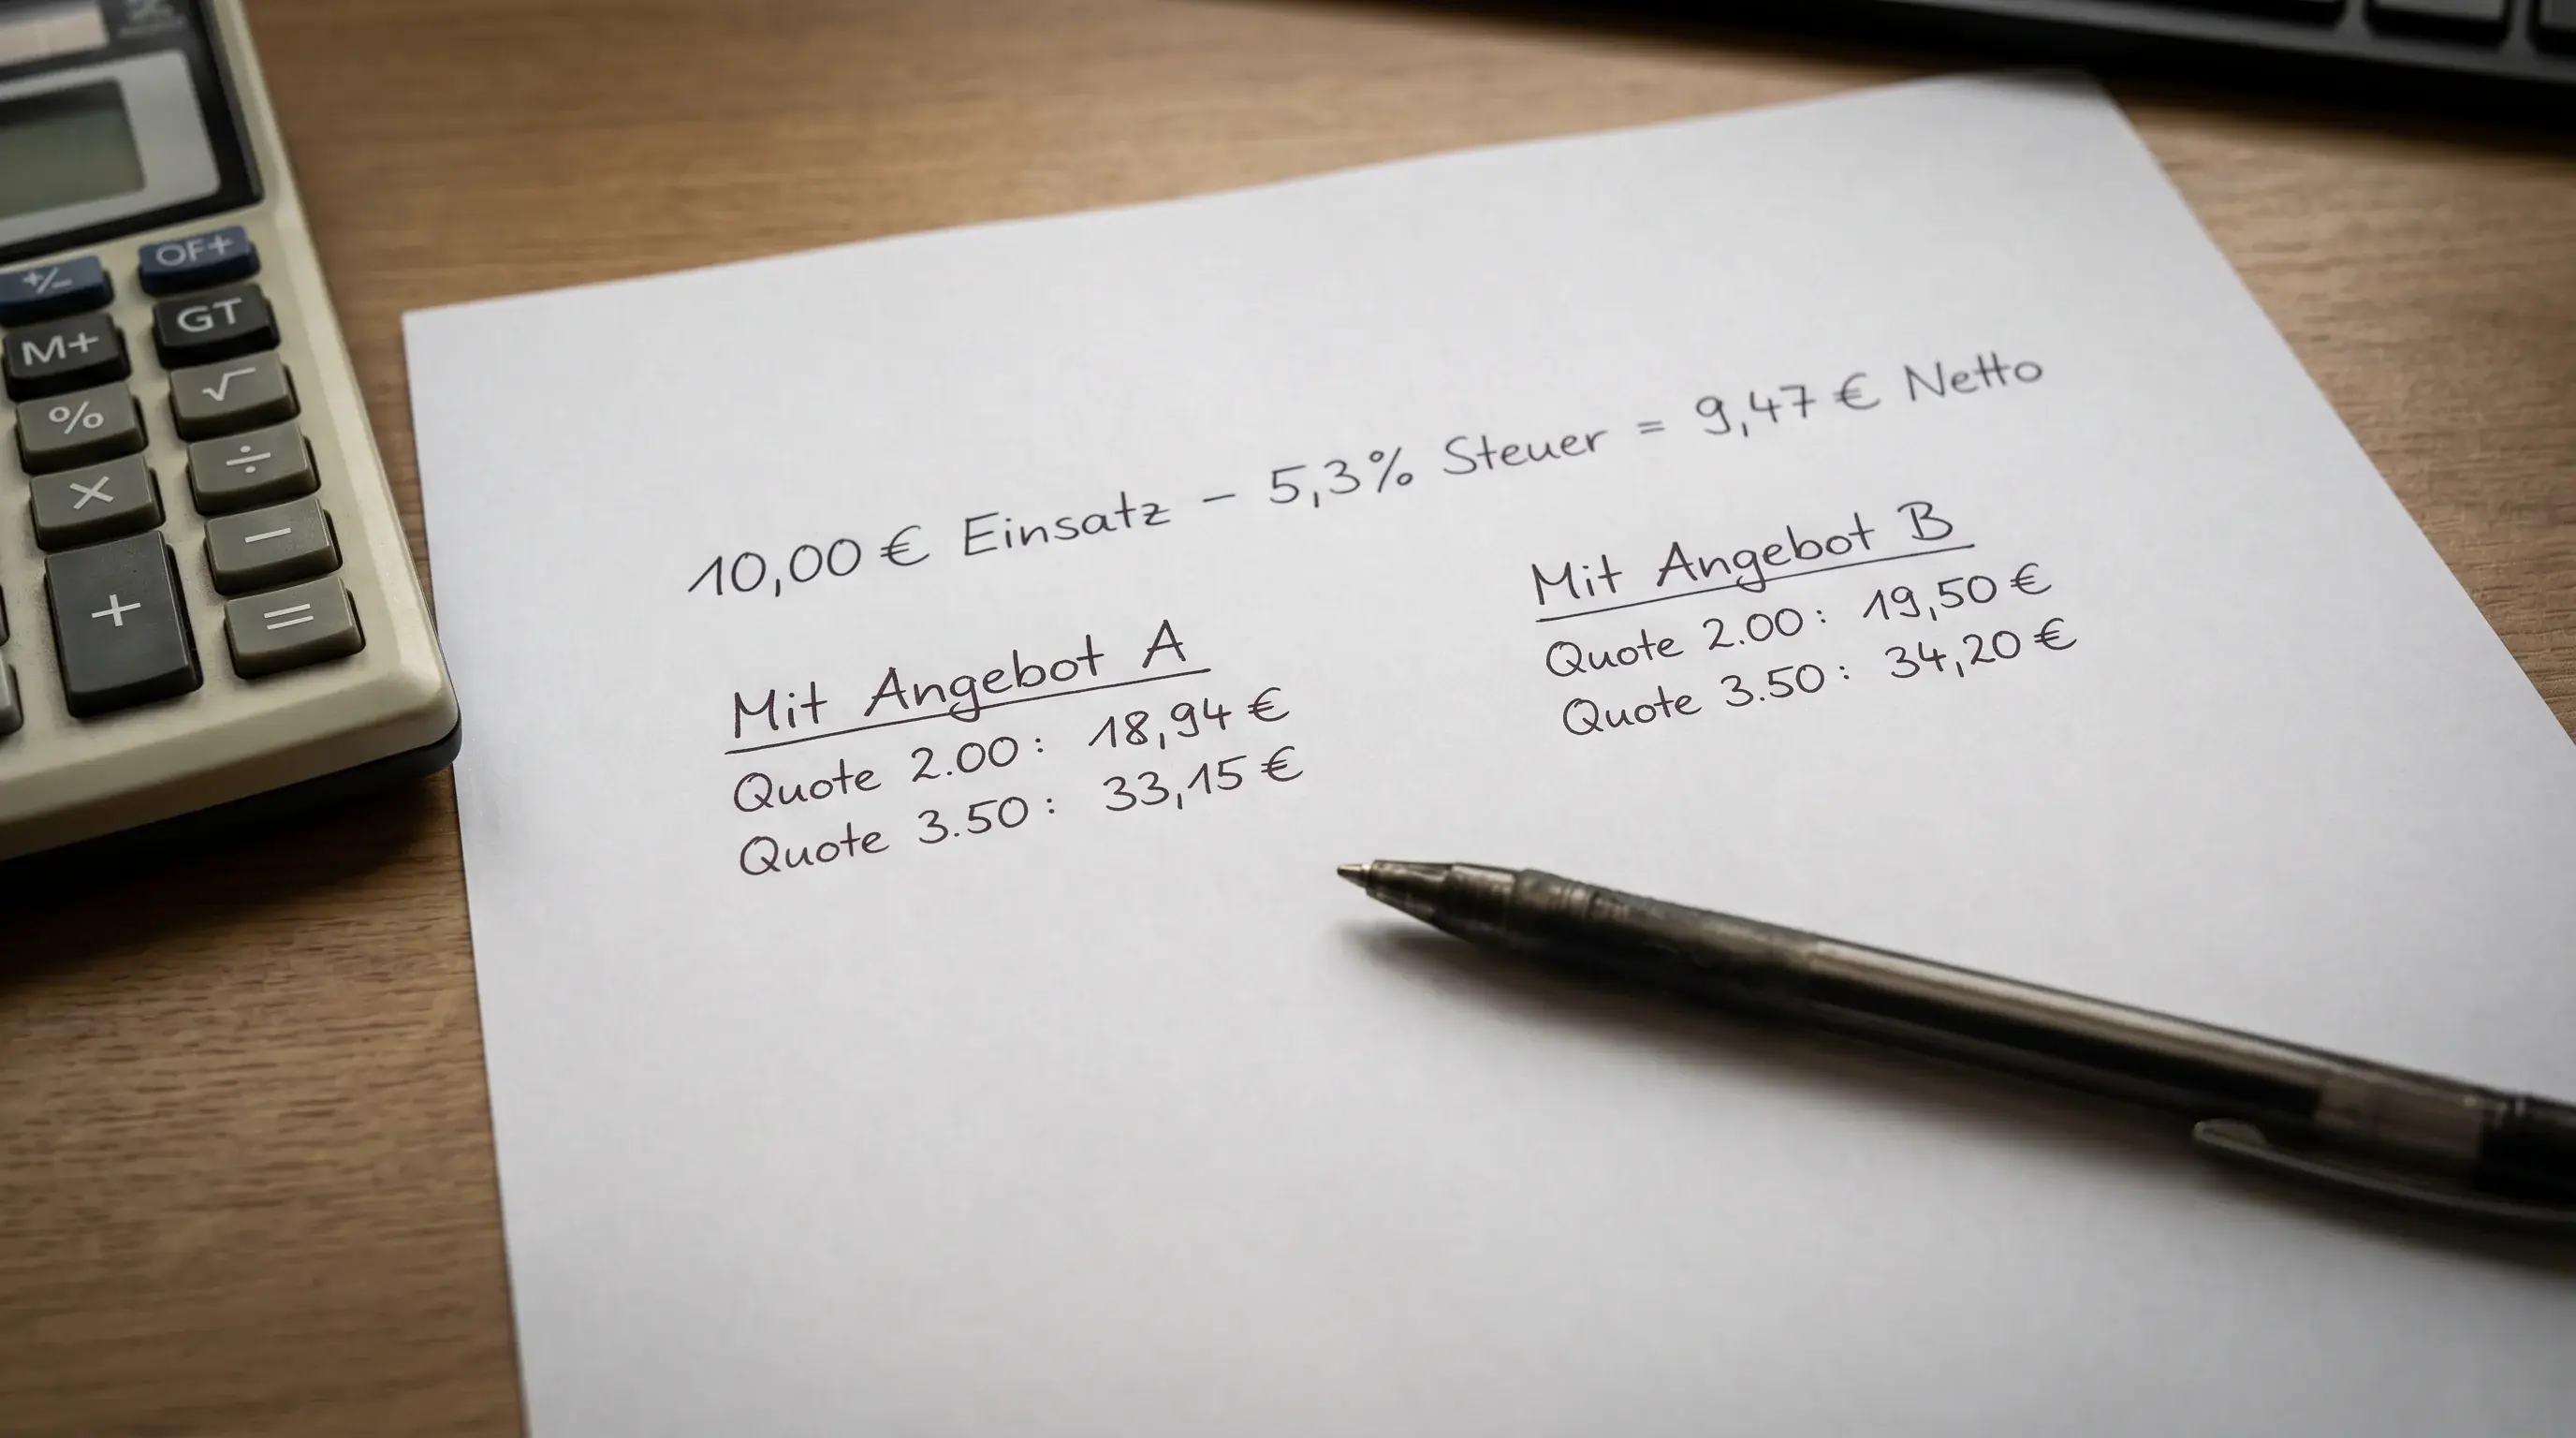 OF+
+/-
GT
M+
√
%
÷
×
-
+
=
10,00 € Einsatz - 5,3% Steuer = 9,47 € Netto
Mit Angebot A
Quote 2.00: 18,94 €
Quote 3.50: 33,15 €
Mit Angebot B
Quote 2.00: 19,50 €
Quote 3.50: 34,20 €